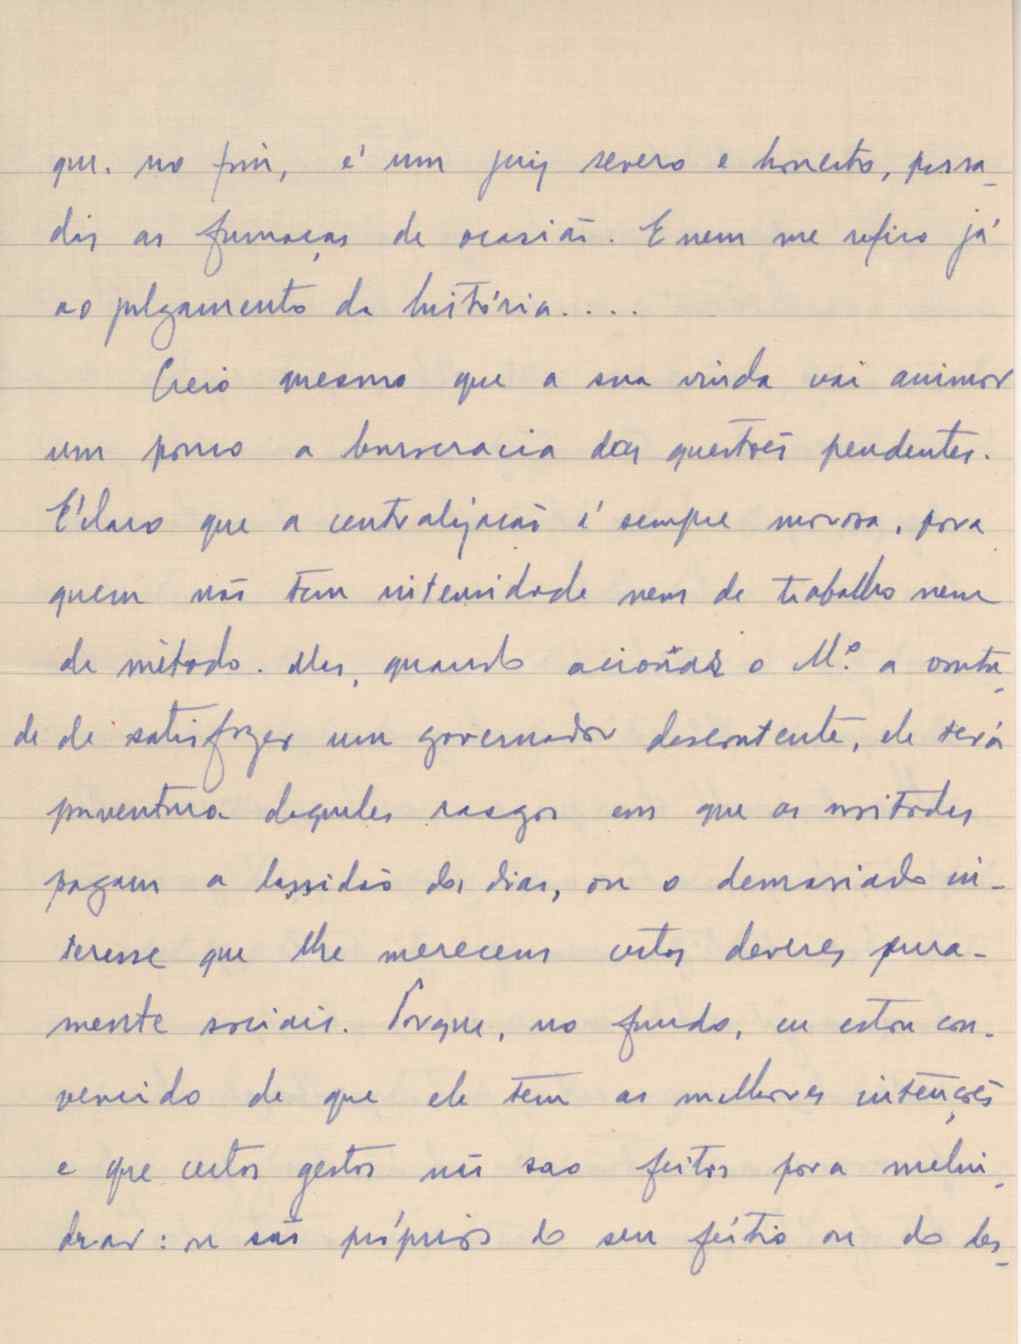 que, no fim, é um juiz severo e honesto, passa-
das as fumaças de ocasião. E nem me refiro já
ao julgamento da história....
Creio mesmo que a sua vinda vai animar
um pouco a burocracia das questões pendentes.
É claro que a centralização é sempre morosa, para
quem não tem intensidade nem de trabalho nem
de método. Mas, quando acionar o M.º a vonta-
de de satisfazer um governador descontente, ele terá
porventura daqueles rasgos em que as vontades
pagam a lassidão dos dias, ou o demasiado in-
teresse que lhe merecem certos deveres pura-
mente sociais. Porque, no fundo, eu estou con-
vencido de que ele tem as melhores intenções
e que certos gestos não sao feitos para melin-
drar: ou são próprios do seu feitio ou do des-